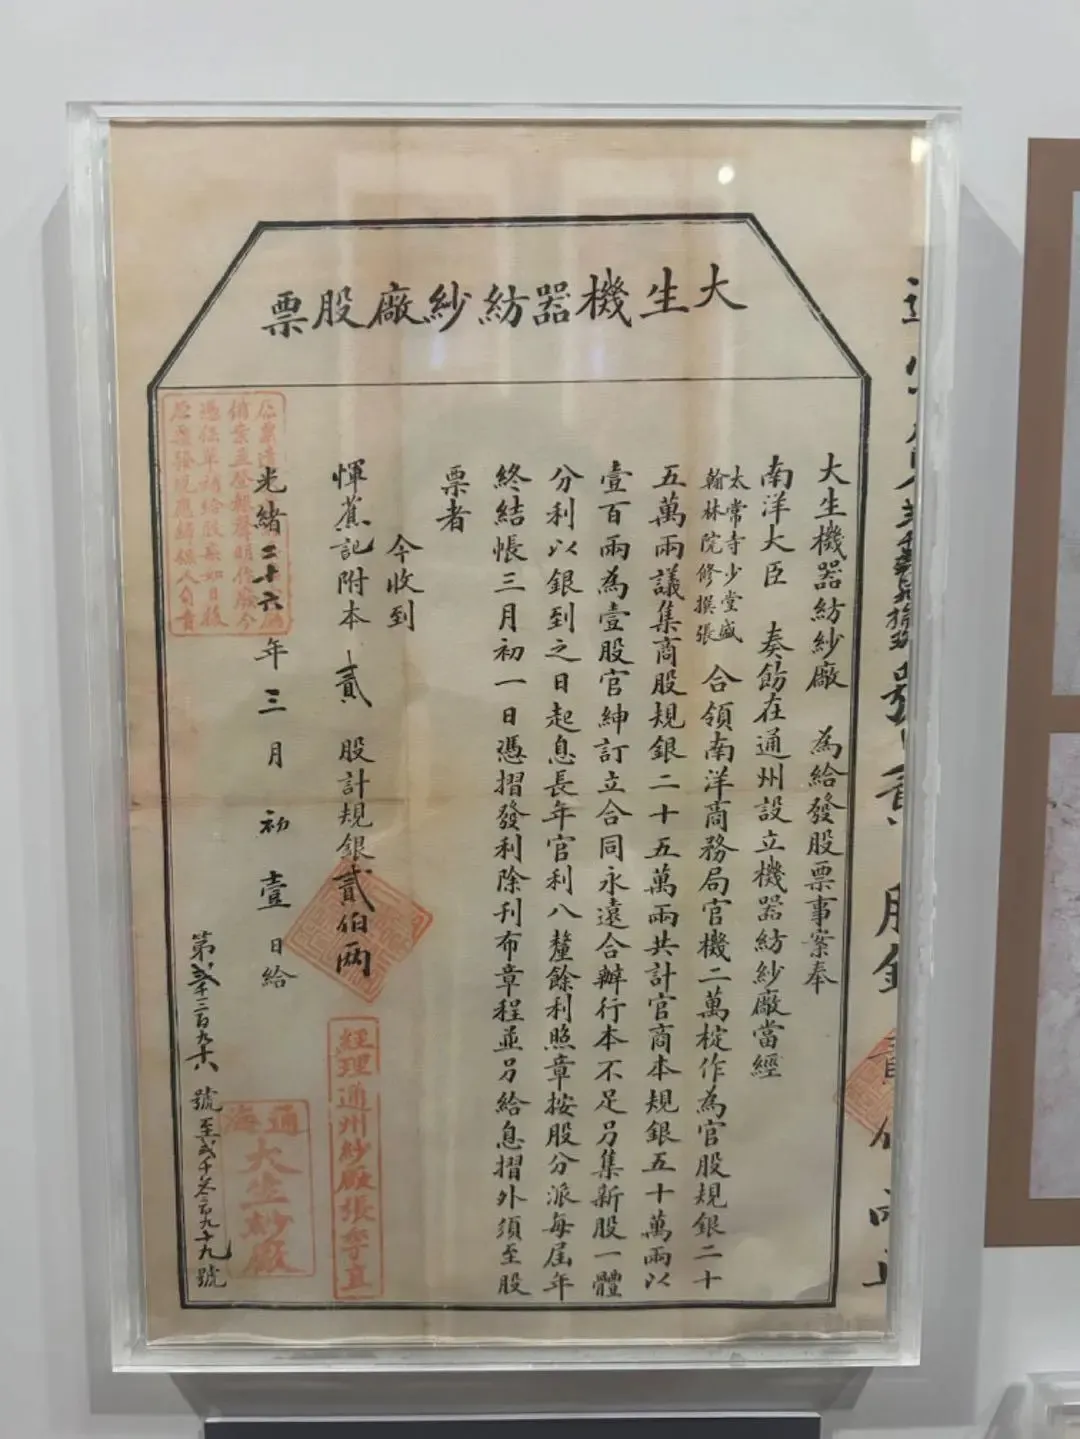 大生機器紡紗廠股票
大生機器紡紗廠 為給發股票事案奉
南洋大臣 奏飭在通州設立機器紡紗廠當經
太常寺少堂盛
翰林院修撰張
合領南洋商務局官機二萬梃作為官股規銀二十
五萬兩議集商股規銀二十五萬兩共計官商本規銀五十萬兩以
壹百兩為壹股官紳訂立合同永遠合辦行本不足另集新股一體
分利以銀到之日起息長年官利八釐餘利照章按股分派每屆年
終結帳三月初一日憑摺發利除刊布章程並另給息摺外須至股
票者
今收到
惲蕉記附本貳 股計規銀貳伯两
經理通州紗廠張季直
光緒二十六年三月初壹日給
通海
大生紗廠
號至弍千叁百九十九號